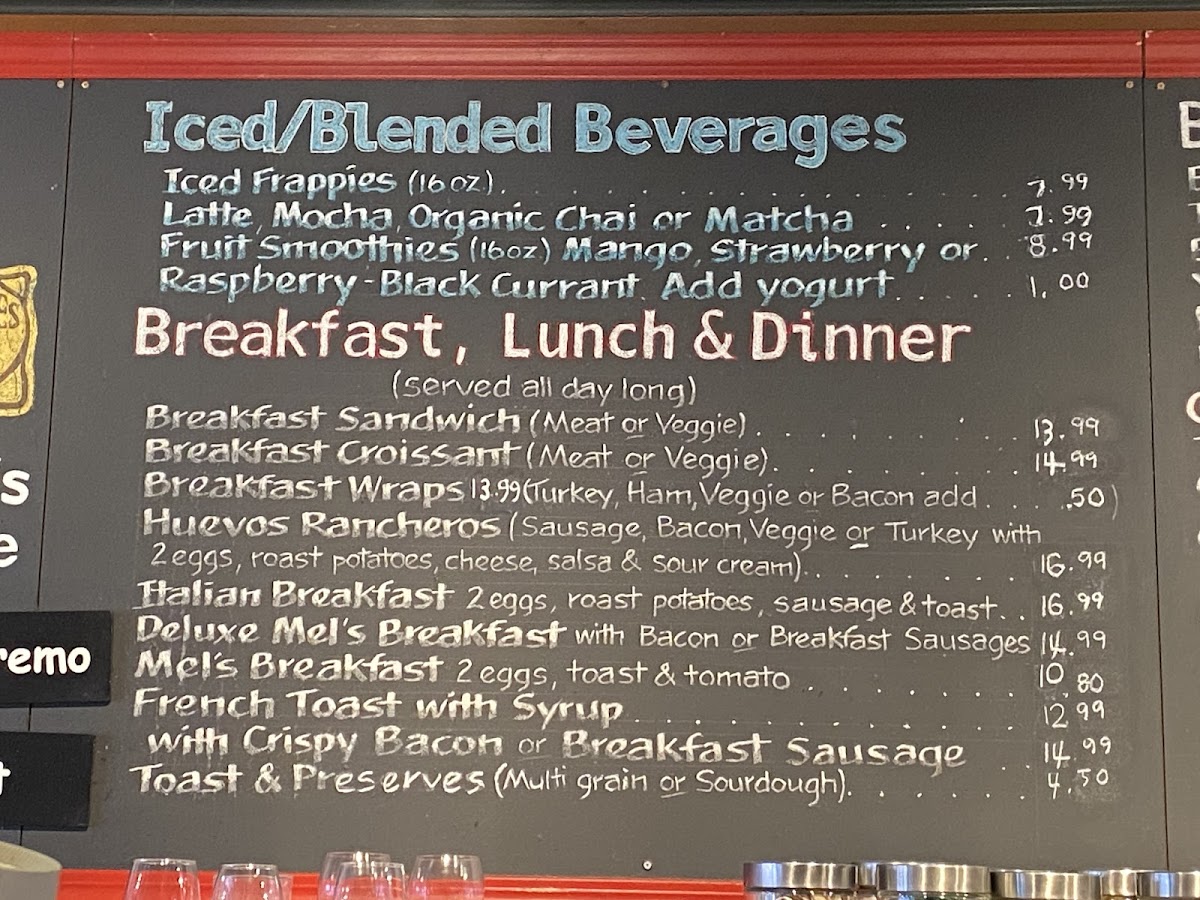 Iced/Blended Beverages
Iced Frappies (16 oz). . . . . . . . . . . . . . . . 7.99
Latte, Mocha, Organic Chai or Matcha . . . . . 7.99
Fruit Smoothies (16oz) Mango, Strawberry or . . 8.99
Raspberry-Black Currant. Add yogurt . . . . . 1.00
Breakfast, Lunch & Dinner
(served all day long)
Breakfast Sandwich (Meat or Veggie) . . . . . . . . . 13.99
Breakfast Croissant (Meat or Veggie). . . . . . . . 14.99
Breakfast Wraps 13.99 (Turkey, Ham, Veggie or Bacon add . . . .50)
Huevos Rancheros (Sausage, Bacon, Veggie or Turkey with
2 eggs, roast potatoes, cheese, salsa & sour cream). . . . . . . . 16.99
Italian Breakfast 2 eggs, roast potatoes, sausage & toast. . . 16.99
Deluxe Mel's Breakfast with Bacon or Breakfast Sausages 14.99
Mel's Breakfast 2 eggs, toast & tomato . . . . . . . 10.80
French Toast with Syrup . . . . . . . . . . . 12.99
with Crispy Bacon or Breakfast Sausage . . 14.99
Toast & Preserves (Multi grain or Sourdough). . . . . . . 4.50
remo